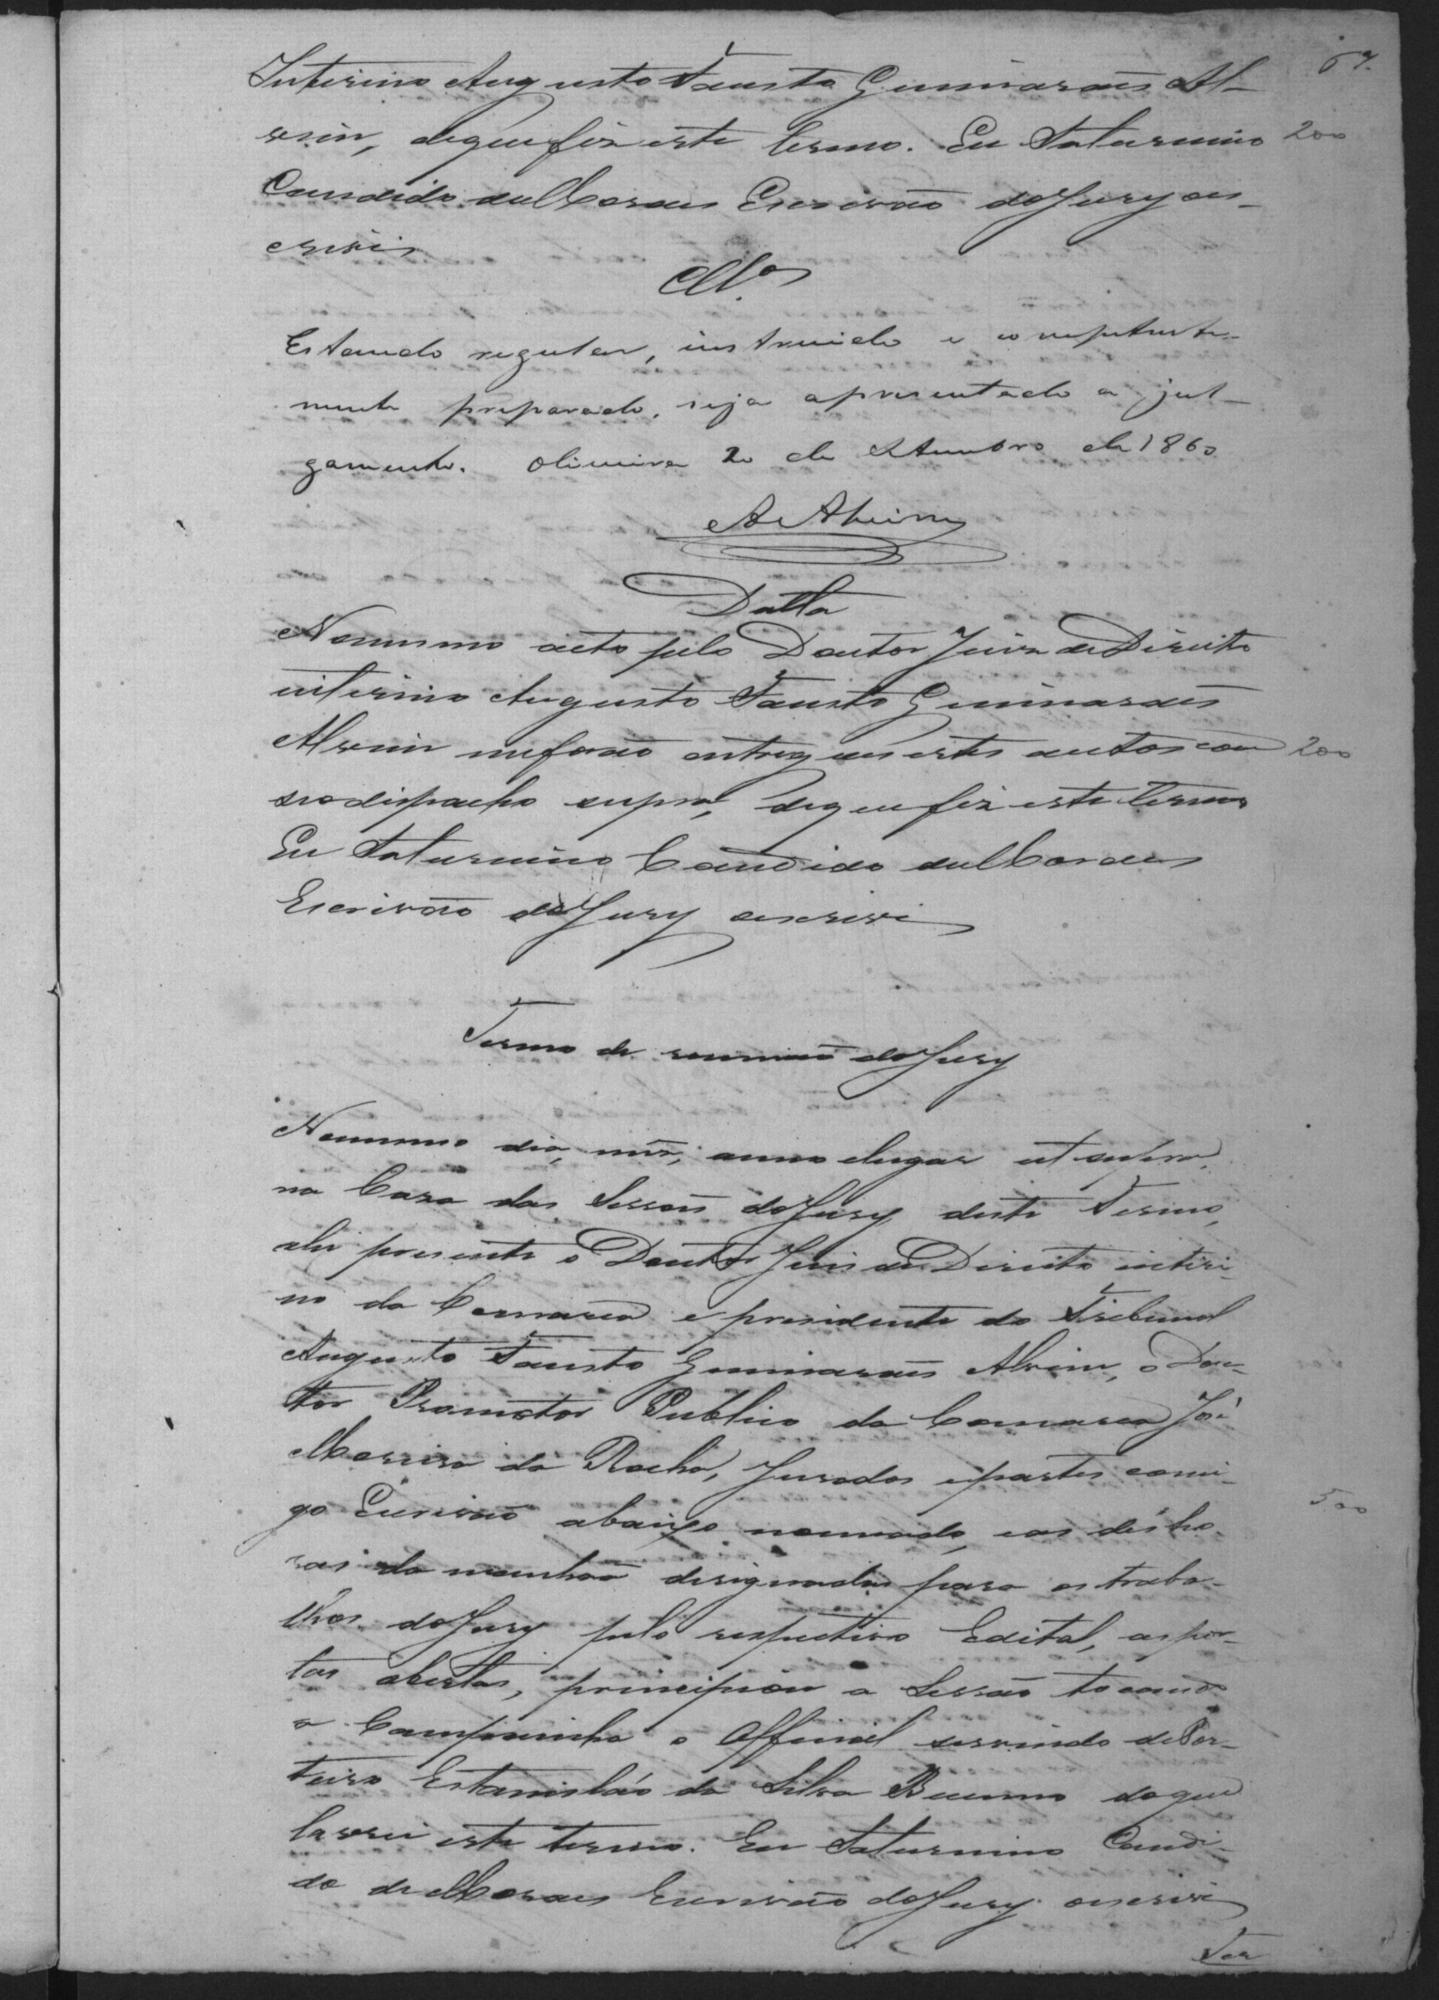 67.
Interino Augusto Fausto Guimarães Al-
vim, de que fiz este termo. Eu Saturnino 200
Candido de Moraes Escrivão do Jury o es-
crivi
Cls.os
Estando regular, instruido e competente-
mente preparado, seja apresentado a jul-
gamento. Oliveira 20 de Setembro de 1860
A. Alvim
Datta
No mesmo acto pelo Doutor Juiz de Direito
interino Augusto Fausto Guimarães
Alvim me forão entregues estes autos com 200
seo dispacho supra, de que fiz este termo
Eu Saturnino Candido de Moraes
Escrivão do Jury o escrivi
Termo de reunião do Jury
No mesmo dia, mez, anno e lugar ut supra,
na Caza das Sessões do Jury deste Termo,
ahi presente o Doutor Juis de Direito interi-
no da Comarca e presidente do Tribunal
Augusto Fausto Guimarães Alvim, o Dou-
tor Promotor Publico da Comarca José
Morreira da Rocha, Jurados e partes comi-
go Escrivão abaixo nomeado, e as des ho- 500
ras da manhãa designadas para os traba-
lhos do Jury pelo respectivo Edital, as por-
tas abertas, principiou a Sessão tocando
a Campainha o Official servindo de Por-
teiro Estanisláo da Silva Bueno do que
lavrei este termo. Eu Saturnino Candi-
do de Moraes Escrivão do Jury o escrivi
Ter